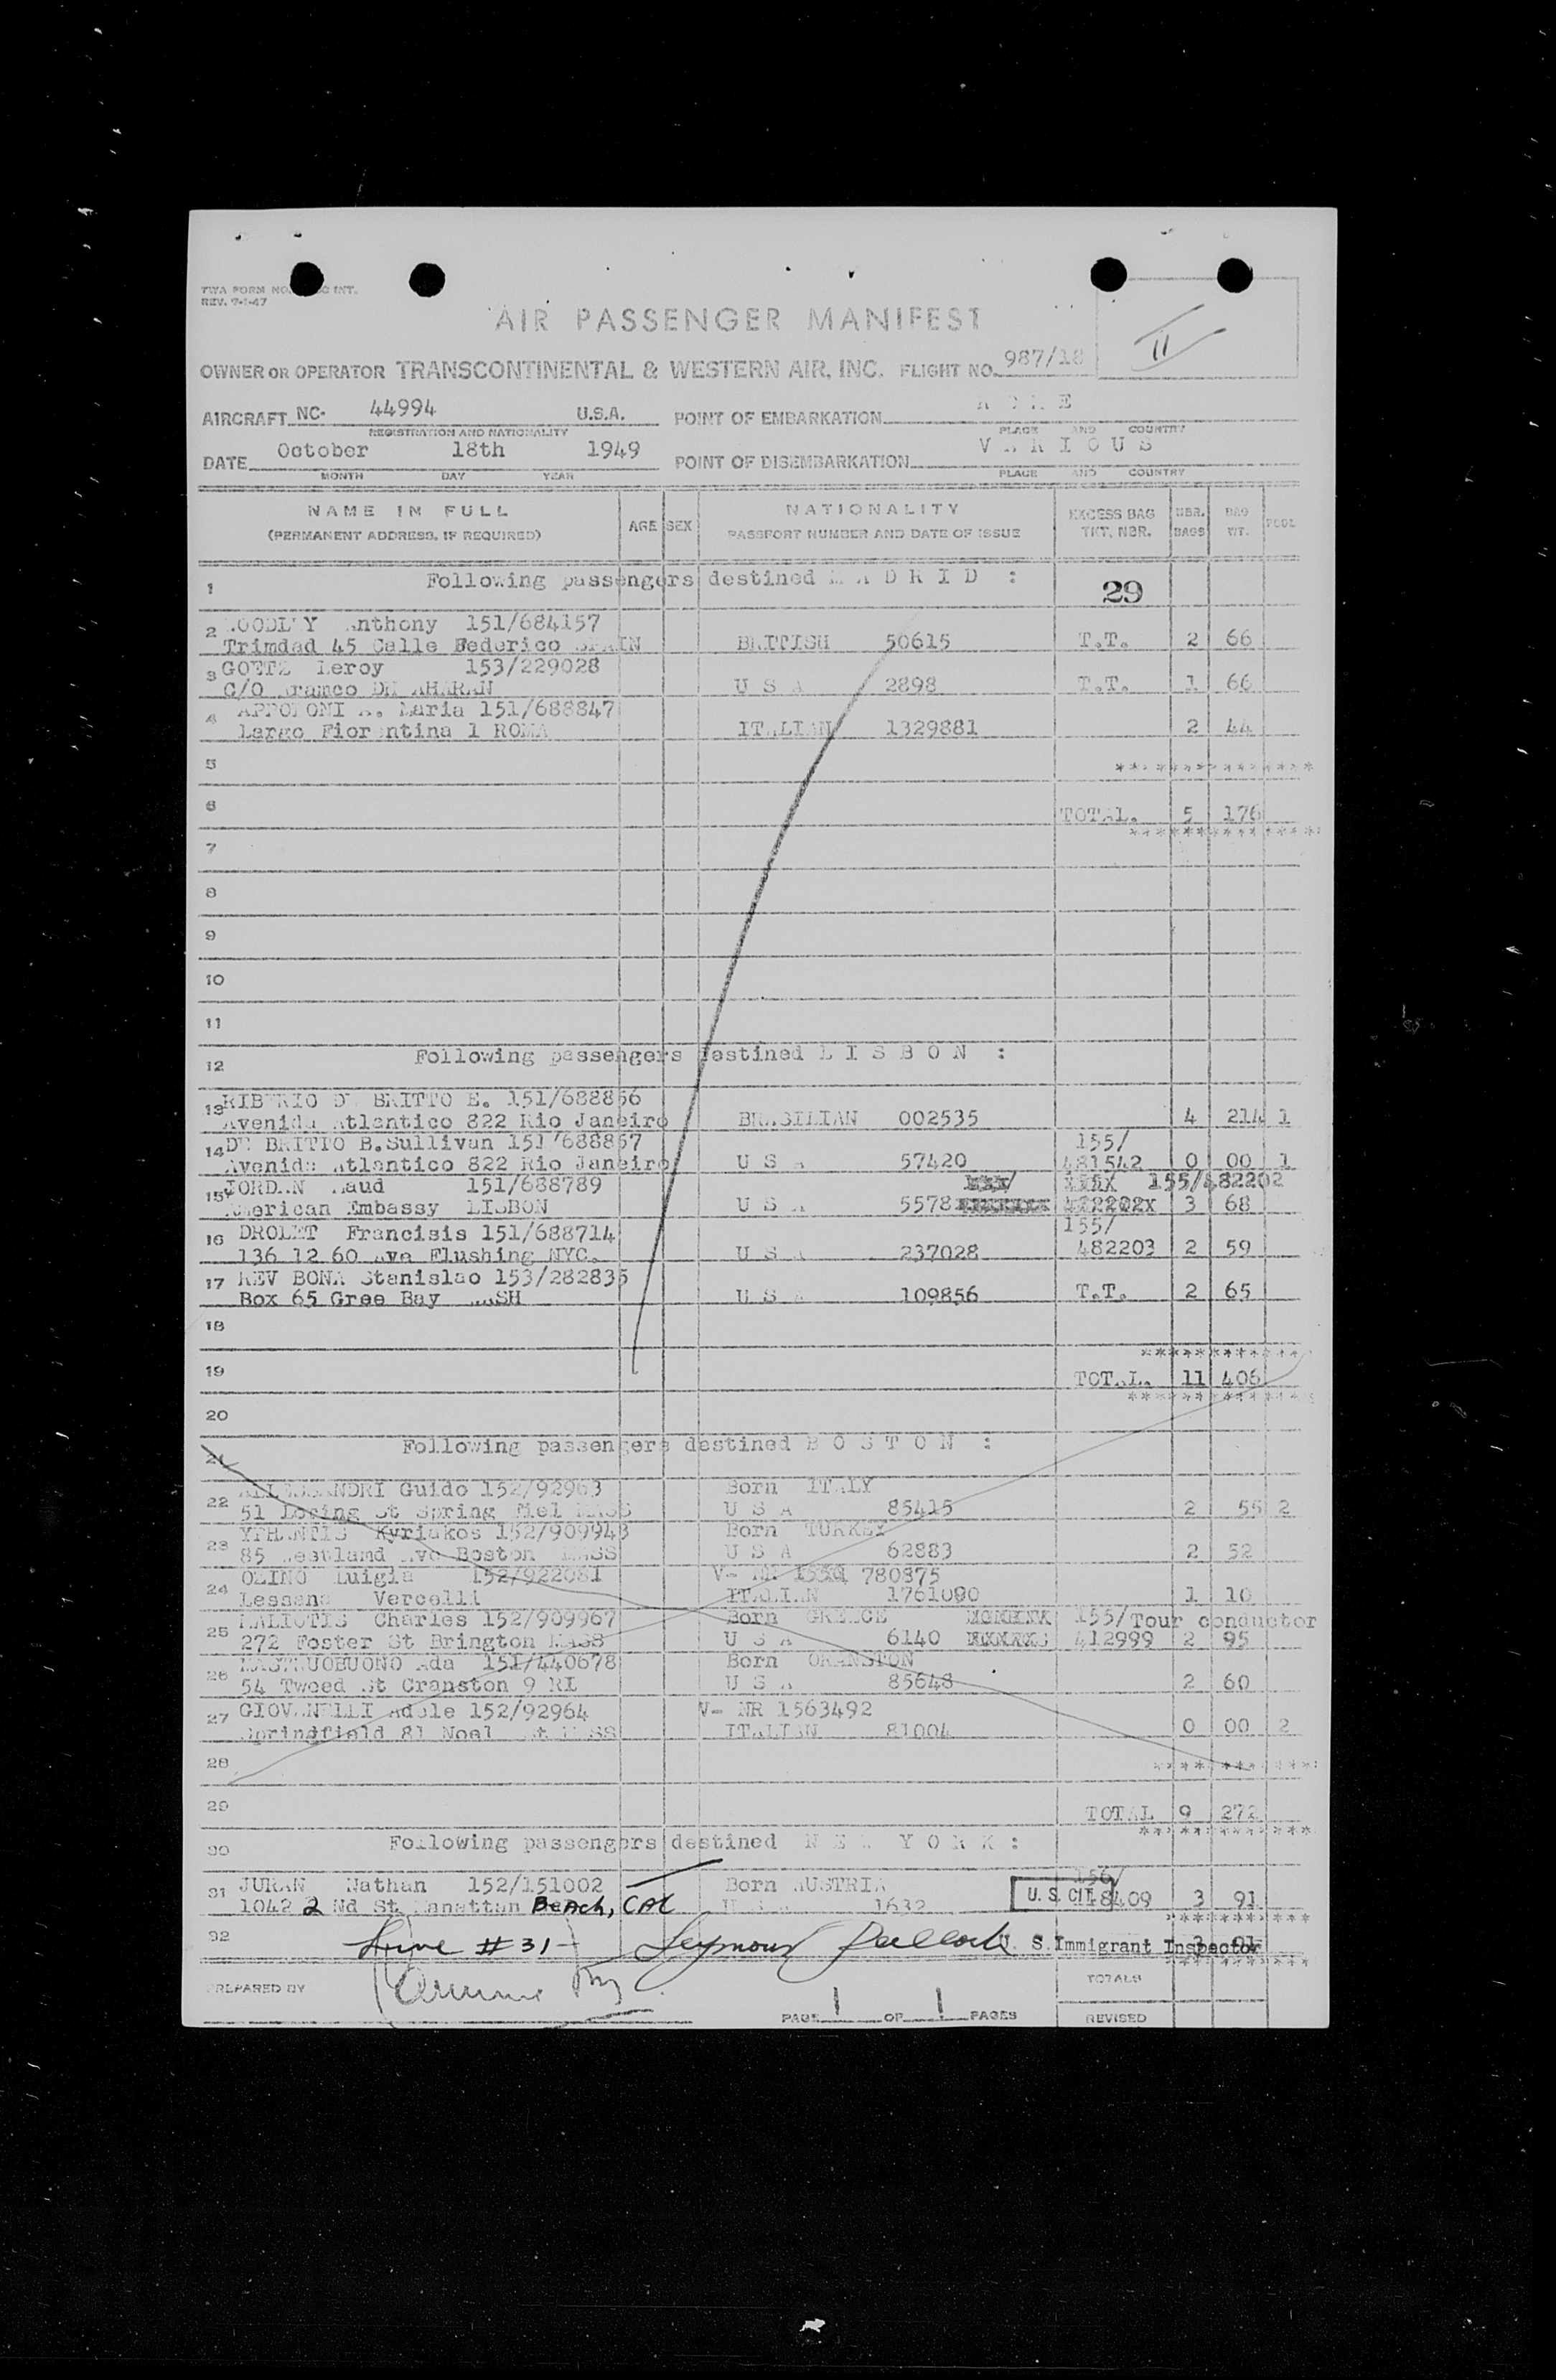 TWA FORM NO. INT.
REV. 7-1-47
AIR PASSENGER MANIFEST
II
OWNER OR OPERATOR TRANSCONTINENTAL & WESTERN AIR, INC. FLIGHT NO. 987/18
AIRCRAFT NC- 44994 U.S.A. POINT OF EMBARKATION
REGISTRATION AND NATIONALITY PLACE AND COUNTRY
DATE October 18th 1949 POINT OF DISEMBARKATION VARIOUS
MONTH DAY YEAR PLACE AND COUNTRY
NAME IN FULL (PERMANENT ADDRESS, IF REQUIRED) AGE SEX NATIONALITY PASSPORT NUMBER AND DATE OF ISSUE EXCESS BAG TKT. NBR. NBR. BAGS BAG WT. POOL
1 Following passengers destined MADRID : 29
2 Anthony 151/684157
Trimdad 45 Calle Federico SPAIN BRITISH 50615 T.T. 2 66
3 GOETZ Leroy 153/229028
C/O Aramco DHAHARAN U S A 2898 T.T. 1 66
4 APPOLONI A. Maria 151/688847
Largo Fiorentina 1 ROMA ITALIAN 1329881 2 44
5 **************
6 TOTAL. 5 176
7 **************
8
9
10
11
12 Following passengers destined LISBON :
13 RIBERIO DE BRITTO E. 151/688856
Avenida Atlantico 822 Rio Janeiro BRASILIAN 002535 4 214 1
14 DE BRITIO B.Sullivan 151/688857 155/
Avenida Atlantico 822 Rio Janeiro U S A 57420 481542 0 00 1
15 JORDAN Maud 151/688789 155/482202
American Embassy LISBON U S A 5578 3 68
16 DROLET Francisis 151/688714 155/
136 12 60 Ava Flushing NYC. U S A 237028 482203 2 59
17 REV BONA Stanislao 153/282835
Box 65 Gree Bay WASH U S A 109856 T.T. 2 65
18 **************
19 TOTAL. 11 406
20 **************
21 Following passengers destined BOSTON :
22 ALLESSANDRI Guido 152/92963 Born ITALY
51 Loring St Spring Fiel MASS U S A 85415 2 55 2
23 YPHANTIS Kyriakos 152/909943 Born TURKEY
85 Westlamd Ave Boston MASS U S A 62883 2 52
24 OZINO Luigia 152/922081 V- NR 780875
Lessana Vercelli ITALIAN 1761080 1 10
25 MALIOTIS Charles 152/909967 Born GREECE 155/Tour conductor
272 Foster St Brington MASS U S A 6140 412999 2 95
26 MASTRUOBUONO Ada 151/440678 Born CRANSTON
54 Tweed St Cranston 9 RI U S A 85648 2 60
27 GIOVANELLI Adele 152/92964 V- NR 1563492
Springfield 81 Noel St MASS ITALIAN 81004 0 00 2
28 **************
29 TOTAL 9 272
30 Following passengers destined NEW YORK : **************
31 JURAN Nathan 152/151002 Born AUSTRIA 156/
1042 2 Nd St. Manattan Beach, CAL U S A 1632 U. S. CIT 48409 3 91
32 Line #31 Seymour Pollock U. S. Immigrant Inspector 3 91
PREPARED BY TOTALS
PAGE 1 OF 1 PAGES REVISED